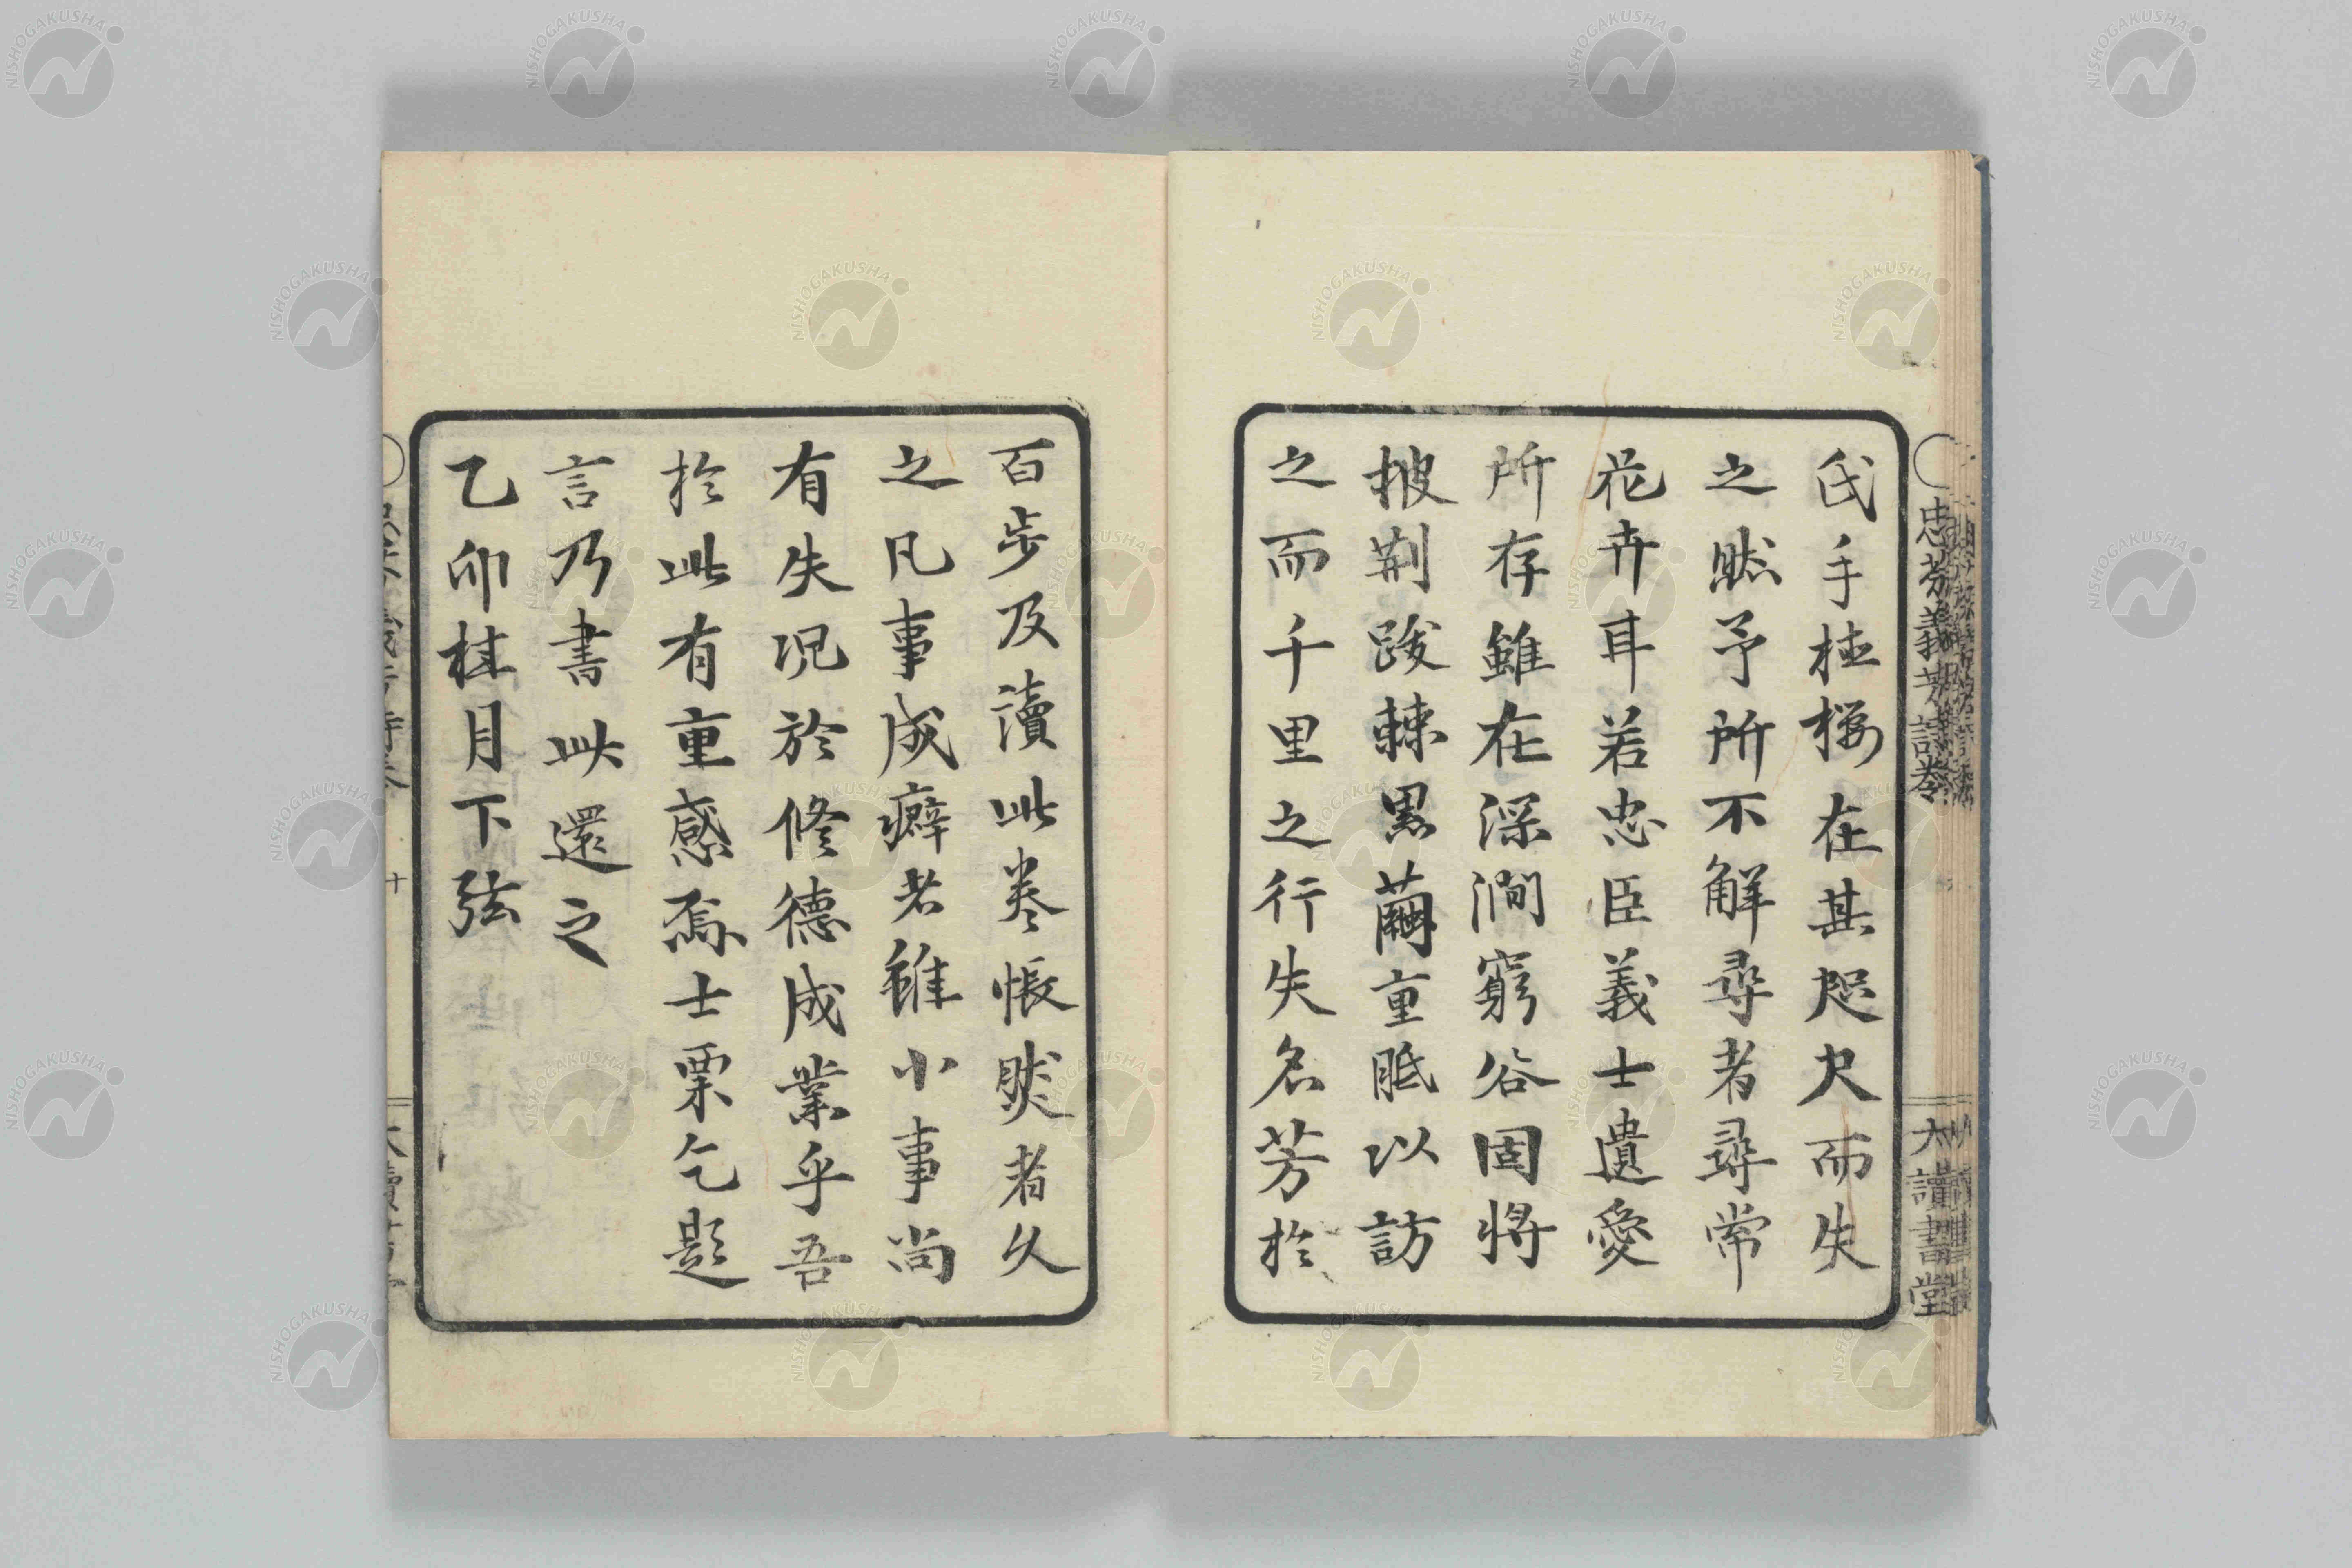 氏手植櫻在其咫尺而失
之然予所不解尋者尋常
花卉耳若忠臣義士遺愛
所存雖在深澗窮谷固將
披荊踆棘黒繭重胝以訪
之而千里之行失名芳於
百步及讀此卷悵然者久
之凡事成癖者雖小事尚
有失况於修德成業乎吾
於此有重感焉士栗乞題
言乃書此還之
乙卯桂月下弦
忠芬義芳詩卷
大讀書堂
十
NISHOGAKUSHA